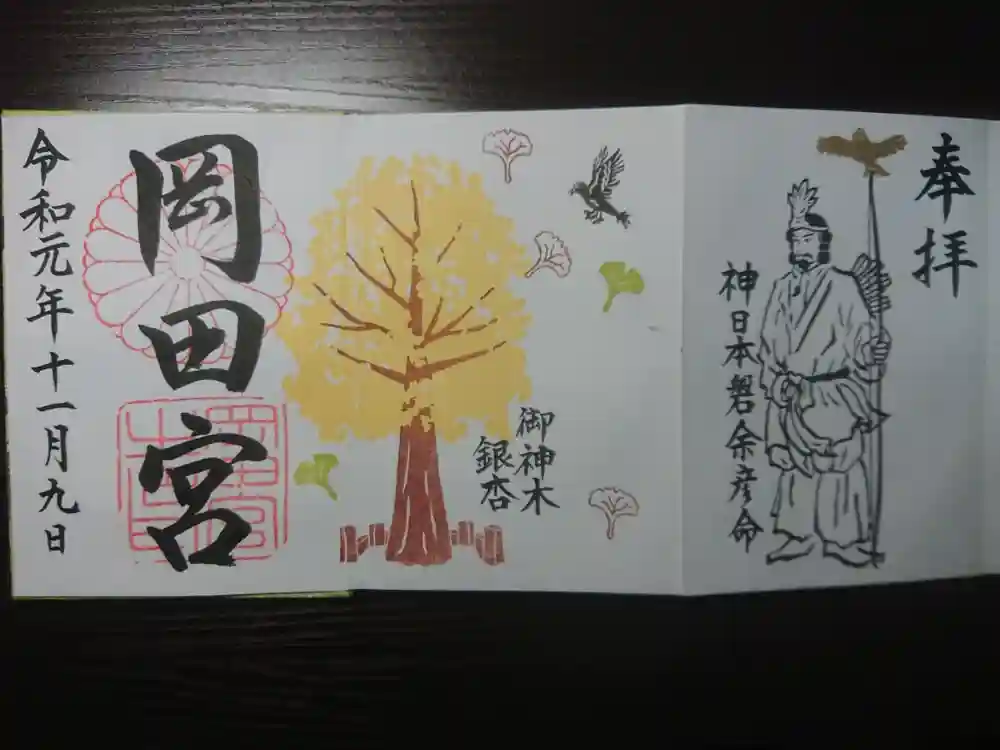 奉拝
神日本磐余彦命
御神木
銀杏
岡田宮
令和元年十一月九日